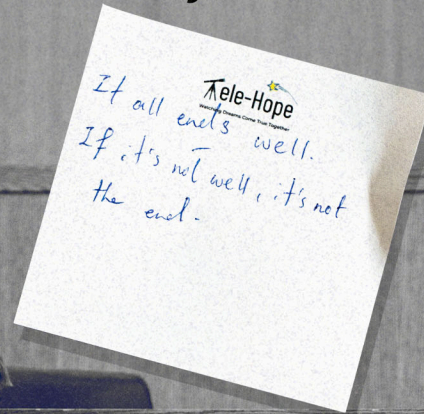 Tele-Hope
Watching Dreams Come True Together
It all ends well.
If it's not well, it's not
the end.